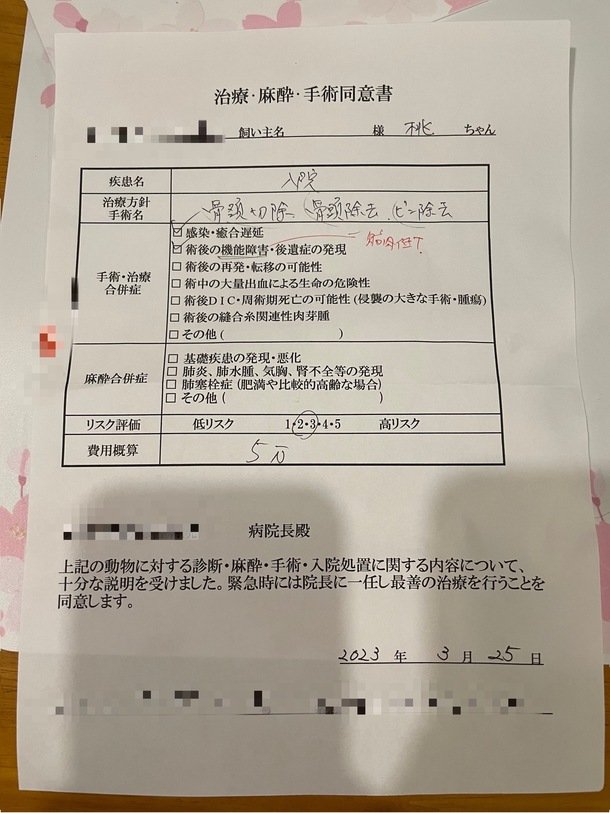 治療・麻酔・手術同意書
飼い主名 様 桃 ちゃん
疾患名
治療方針 手術名 骨頭切除 骨頭除去 ピン除去
手術・治療合併症
☑ 感染・癒合遅延
☑ 術後の機能障害・後遺症の発現
筋肉低下
□ 術後の再発・転移の可能性
□ 術中の大量出血による生命の危険性
□ 術後DIC・周術期死亡の可能性(侵襲の大きな手術・腫瘍)
□ 術後の縫合糸関連性肉芽腫
□ その他( )
麻酔合併症
□ 基礎疾患の発現・悪化
□ 肺炎、肺水腫、気胸、腎不全等の発現
□ 肺塞栓症(肥満や比較的高齢な場合)
□ その他( )
リスク評価 低リスク 1・2・3・4・5 高リスク
費用概算 5万
病院長殿
上記の動物に対する診断・麻酔・手術・入院処置に関する内容について、
十分な説明を受けました。緊急時には院長に一任し最善の治療を行うことを
同意します。
2023 年 3 月 25 日